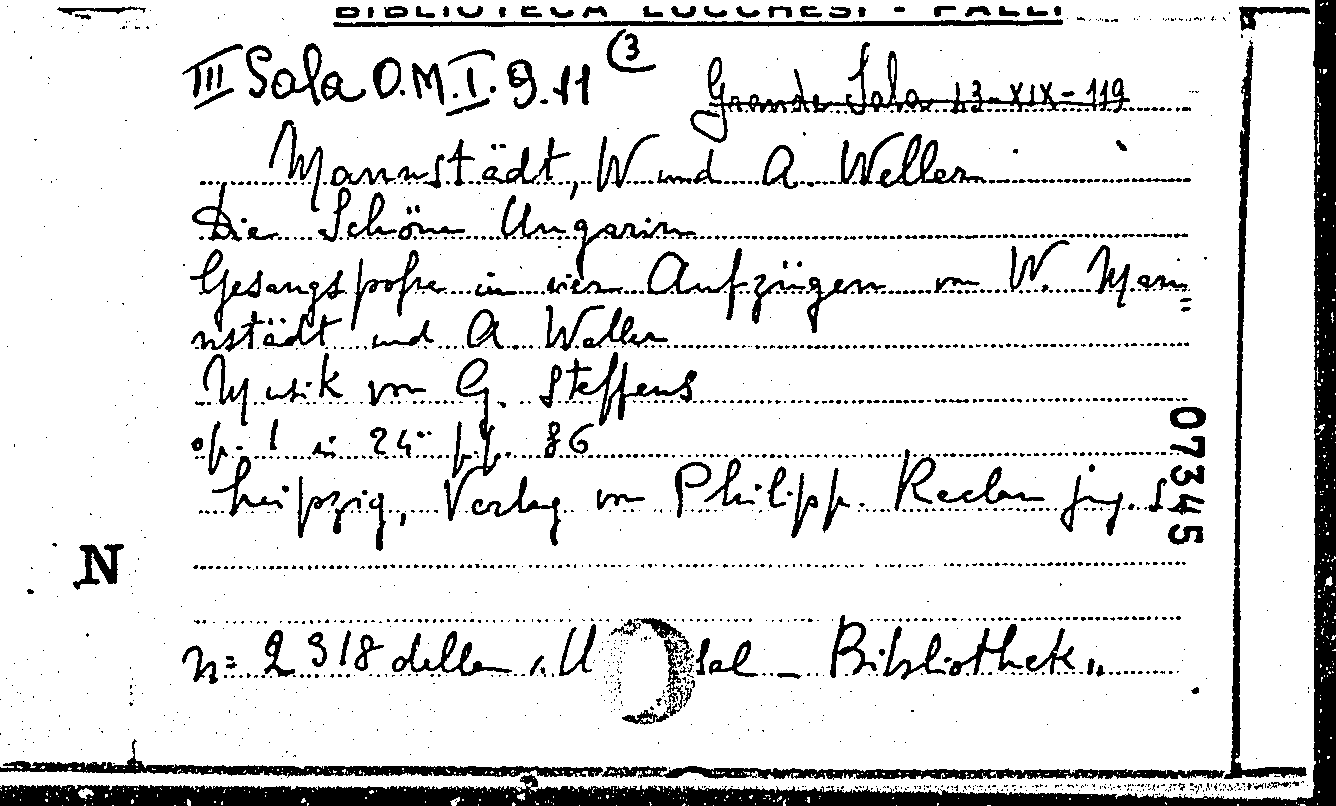 BIBLIOTECA LUCCHESI - PALLI
III Sala O.M.I.9.11 (3
Grande Sala 23-XIX-119
Mannstädt, W und A. Weller
Die Schöne Ungarin
Gesangsposse in vier Aufzügen von W. Man=
nstädt und A. Weller
Musik von G. Steffens
op. 1 in 24° pp. 86
Leipzig, Verlag von Philipp. Reclam jug.
07345
N
n= 2318 della "U sal - Bibliothek"